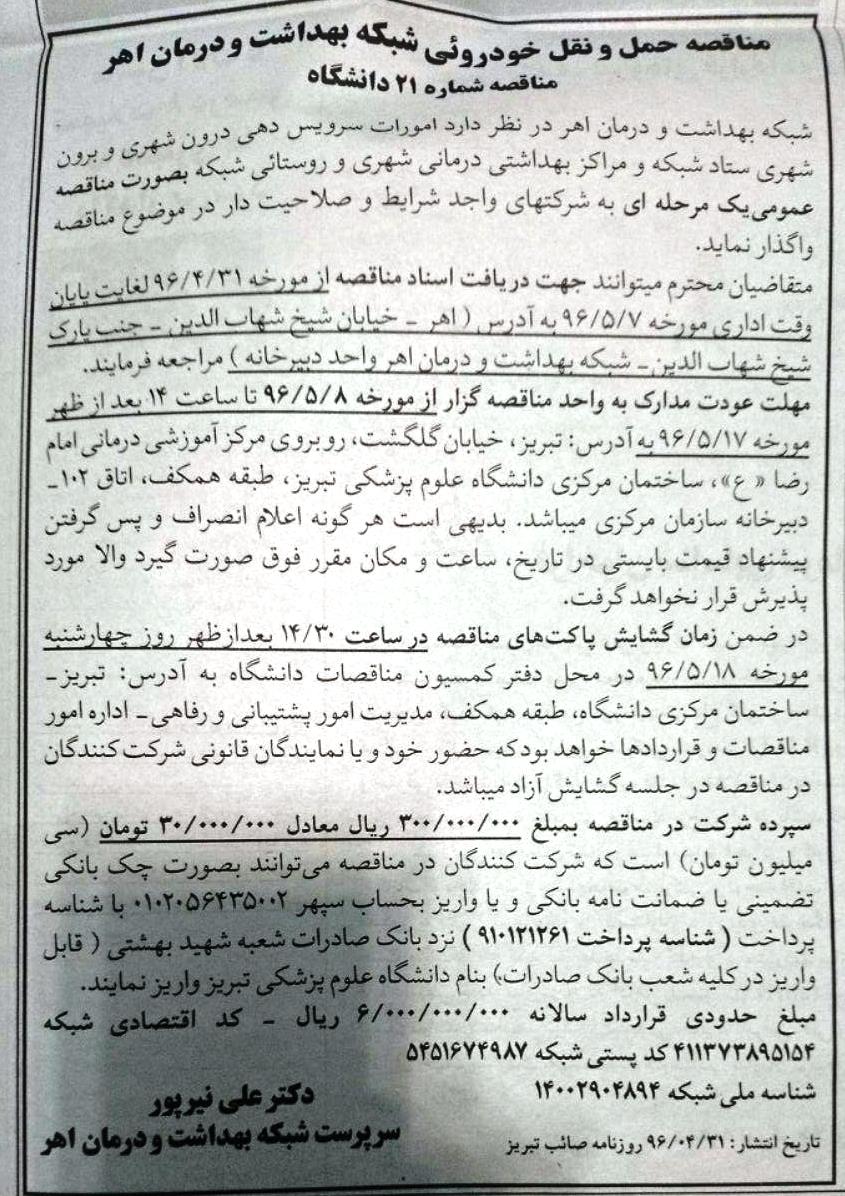 مناقصه حمل و نقل خودروئی شبکه بهداشت و درمان اهر
مناقصه شماره ۲۱ دانشگاه
شبکه بهداشت و درمان اهر در نظر دارد امورات سرویس دهی درون شهری و برون
شهری ستاد شبکه و مراکز بهداشتی درمانی شهری و روستائی شبکه بصورت مناقصه
عمومی یک مرحله ای به شرکتهای واجد شرایط و صلاحیت دار در موضوع مناقصه
واگذار نماید.
متقاضیان محترم میتوانند جهت دریافت اسناد مناقصه از مورخه ۹۶/۴/۳۱ لغایت پایان
وقت اداری مورخه ۹۶/۵/۷ به آدرس ( اهر – خیابان شیخ شهاب الدین – جنب پارک
شیخ شهاب الدین – شبکه بهداشت و درمان اهر واحد دبیرخانه ) مراجعه فرمایند.
مهلت عودت مدارک به واحد مناقصه گزار از مورخه ۹۶/۵/۸ تا ساعت ۱۴ بعد از ظهر
مورخه ۹۶/۵/۱۷ به آدرس: تبریز، خیابان گلگشت، روبروی مرکز آموزشی درمانی امام
رضا « ع»، ساختمان مرکزی دانشگاه علوم پزشکی تبریز، طبقه همکف، اتاق ۱۰۲–
دبیرخانه سازمان مرکزی میباشد. بدیهی است هر گونه اعلام انصراف و پس گرفتن
پیشنهاد قیمت بایستی در تاریخ، ساعت و مکان مقرر فوق صورت گیرد والا مورد
پذیرش قرار نخواهد گرفت.
در ضمن زمان گشایش پاکت‌های مناقصه در ساعت ۱۴/۳۰ بعدازظهر روز چهارشنبه
مورخه ۹۶/۵/۱۸ در محل دفتر کمسیون مناقصات دانشگاه به آدرس: تبریز–
ساختمان مرکزی دانشگاه، طبقه همکف، مدیریت امور پشتیبانی و رفاهی – اداره امور
مناقصات و قراردادها خواهد بود که حضور خود و یا نمایندگان قانونی شرکت کنندگان
در مناقصه در جلسه گشایش آزاد میباشد.
سپرده شرکت در مناقصه بمبلغ ۳۰۰/۰۰۰/۰۰۰ ریال معادل ۳۰/۰۰۰/۰۰۰ تومان (سی
میلیون تومان) است که شرکت کنندگان در مناقصه می‌توانند بصورت چک بانکی
تضمینی یا ضمانت نامه بانکی و یا واریز بحساب سپهر ۰۱۰۲۰۵۶۴۳۵۰۰۲ با شناسه
پرداخت ( شناسه پرداخت ۹۱۰۱۲۱۲۶۱ ) نزد بانک صادرات شعبه شهید بهشتی ( قابل
واریز در کلیه شعب بانک صادرات) بنام دانشگاه علوم پزشکی تبریز واریز نمایند.
مبلغ حدودی قرارداد سالانه ۶/۰۰۰/۰۰۰/۰۰۰ ریال – کد اقتصادی شبکه
۴۱۱۳۷۳۸۹۵۱۵۴ کد پستی شبکه ۵۴۵۱۶۷۴۹۸۷
شناسه ملی شبکه ۱۴۰۰۲۹۰۴۸۹۴
دکتر علی نیرپور
سرپرست شبکه بهداشت و درمان اهر
تاریخ انتشار: ۹۶/۰۴/۳۱ روزنامه صائب تبریز